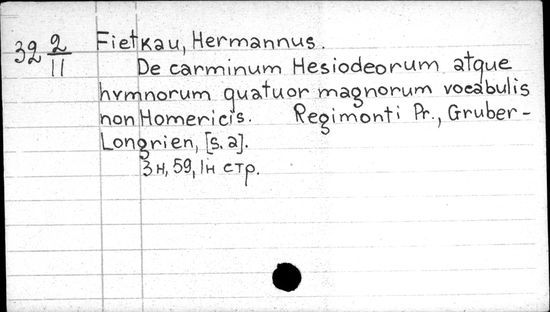 32 2/11
Fietkau, Hermannus.
De carminum Hesiodeorum atque
hvmnorum quatuor magnorum vocabulis
non Homericis. Regimonti Pr., Gruber-
Longrien, [s. a].
3н, 59, 1н стр.